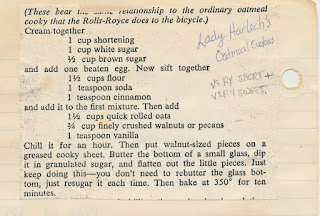 (These bear the same relationship to the ordinary oatmeal
cooky that the Rolls-Royce does to the bicycle.)
Cream together
1 cup shortening
1 cup white sugar
½ cup brown sugar
and add one beaten egg. Now sift together
1½ cups flour
1 teaspoon soda
1 teaspoon cinnamon
and add it to the first mixture. Then add
1½ cups quick rolled oats
¾ cup finely crushed walnuts or pecans
1 teaspoon vanilla
Chill it for an hour. Then put walnut-sized pieces on a
greased cooky sheet. Butter the bottom of a small glass, dip
it in granulated sugar, and flatten out the little pieces. Just
keep doing this—you don't need to rebutter the glass bot-
tom, just resugar it each time. Then bake at 350° for ten
minutes.
Lady Harlech's
Oatmeal Cookies
VERY SHORT +
VERY SWEET.